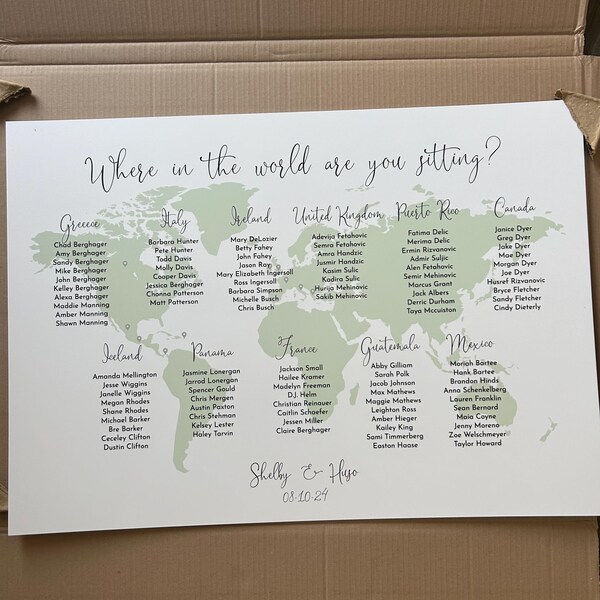 Where in the world are you sitting?
Greece
Chad Berghager
Amy Berghager
Sandy Berghager
Mike Berghager
John Berghager
Kelley Berghager
Alexa Berghager
Maddie Manning
Amber Manning
Shawn Manning
Italy
Barbara Hunter
Pete Hunter
Todd Davis
Molly Davis
Cooper Davis
Jessica Berghager
Chonna Patterson
Matt Patterson
Ireland
Mary DeLozier
Betty Fahey
John Fahey
Jason Ray
Mary Elizabeth Ingersoll
Ross Ingersoll
Barbara Simpson
Michelle Busch
Chris Busch
United Kingdom
Adevija Fetahovic
Semra Fetahovic
Amra Handzic
Jusmin Handzic
Kasim Sulic
Kadira Sulic
Hurija Mehinovic
Sakib Mehinovic
Puerto Rico
Fatima Delic
Merima Delic
Ermin Rizvanovic
Admir Suljic
Alen Fetahovic
Semir Mehinovic
Marcus Grant
Jack Albers
Derric Durham
Taya Mccuiston
Canada
Janice Dyer
Greg Dyer
Jake Dyer
Mae Dyer
Morgan Dyer
Joe Dyer
Husref Rizvanovic
Bryce Fletcher
Sandy Fletcher
Cindy Dieterly
Iceland
Amanda Mellington
Jesse Wiggins
Janelle Wiggins
Megan Rhodes
Shane Rhodes
Michael Barker
Bre Barker
Ceceley Clifton
Dustin Clifton
Panama
Jasmine Lonergan
Jarrod Lonergan
Spencer Gould
Chris Mergen
Austin Paxton
Chris Stehman
Kelsey Lester
Haley Tarvin
France
Jackson Small
Hailee Kramer
Madelyn Freeman
D.J. Helm
Christian Reinauer
Caitlin Schaefer
Jessen Miller
Claire Berghager
Guatemala
Abby Gilliam
Sarah Polk
Jacob Johnson
Max Mathews
Maggie Mathews
Leighton Ross
Amber Hieger
Kailey King
Sami Timmerberg
Easton Haase
Mexico
Moriah Bartee
Hank Bartee
Brandon Hinds
Anna Schenkelberg
Lauren Franklin
Sean Bernard
Maia Coyne
Jenny Moreno
Zoe Welschmeyer
Taylor Howard
Shelby & Huso
08.10.24